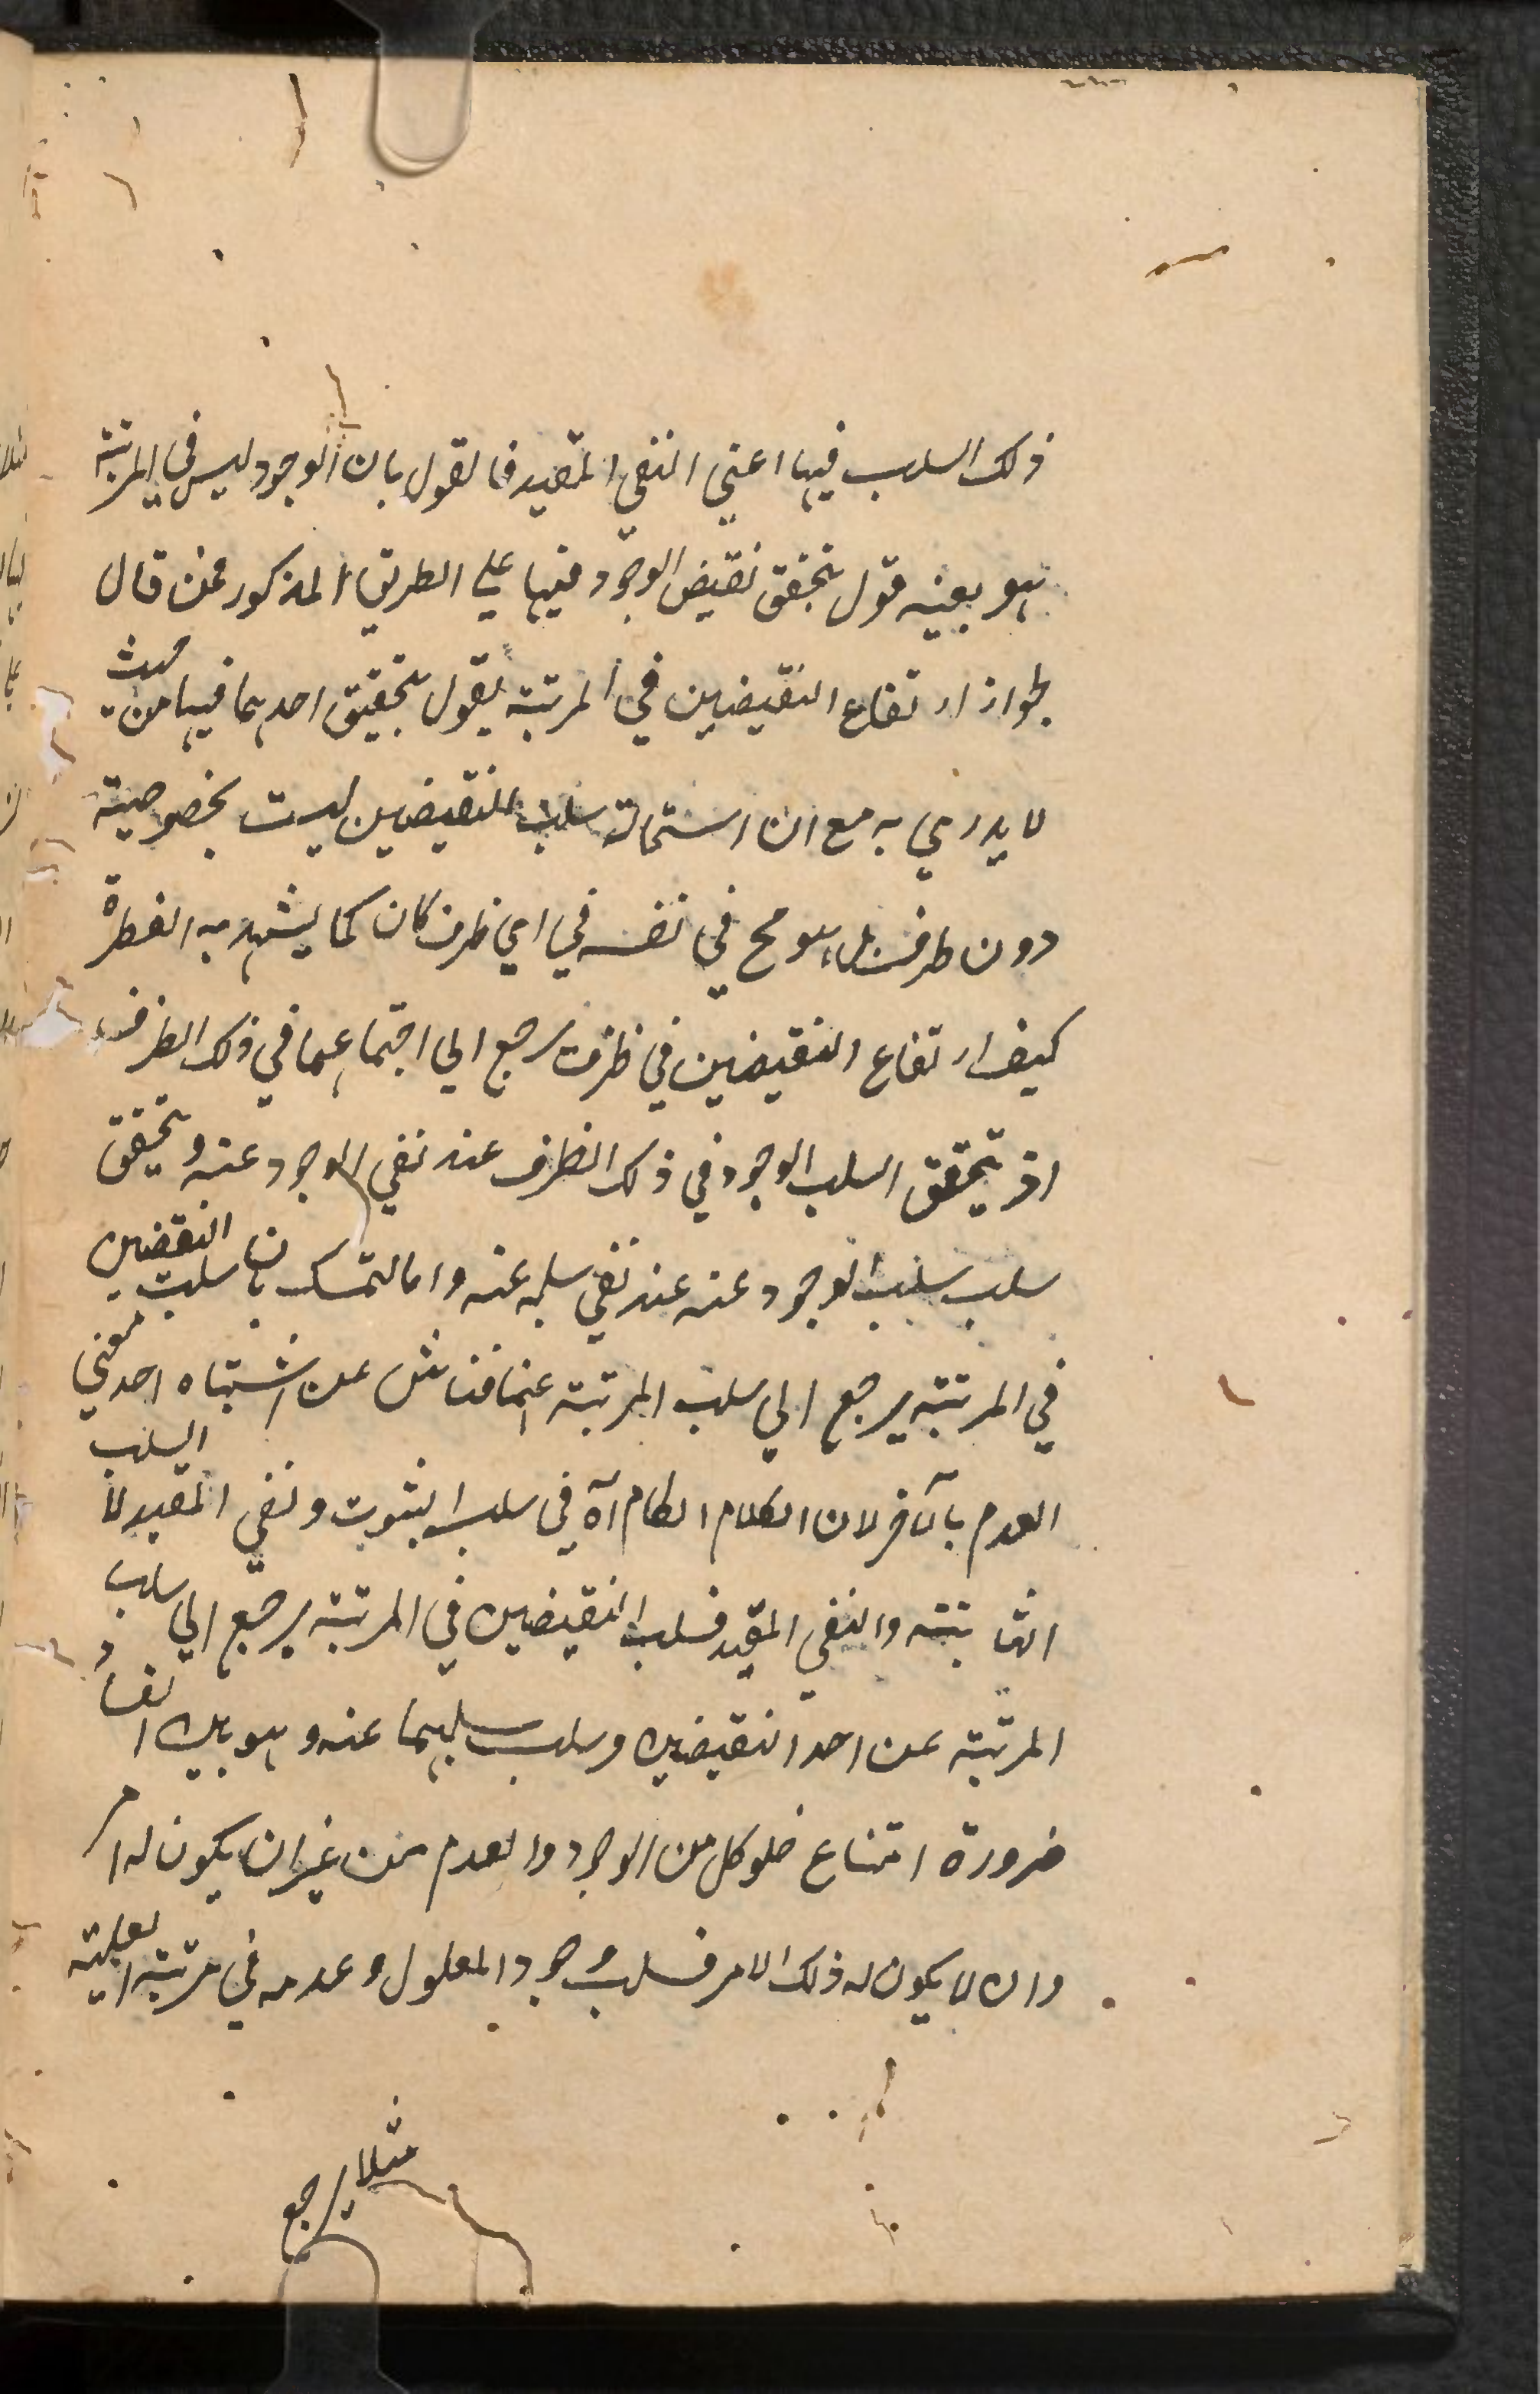 ذلك السلب فيها اعني النفي المقيد فالقول بان الوجود ليس في المرتبة
هو بعينه قول بتحقق نقيض الوجود فيها علي الطريق المذكور فمن قال
بجواز ارتفاع النقيضين في المرتبة يقول بتحقيق احدهما فيها من حيث
لا يدري به مع ان استحالة سلب النقيضين ليست بخصوصية
دون ظرف بل هو مح في نفسه في اي ظرف كان كما يشهد به الفطرة
كيف ارتفاع النقيضين في ظرف يرجع الي اجتماعهما في ذلك الظرف
اذ يتحقق السلب الوجود في ذلك الظرف عند نفي الوجود عنه و يتحقق
سلب سلب الوجود عنه عند نفي سلبه عنه واما التمسك بان سلب النقيضين
في المرتبة يرجع الي سلب المرتبة عنهما فناش عن اشتباه احد معني
العدم بالآخر لان الكلام في سلب الثبوت ونفي المقيد لا السلب
الثابتة والنفي المقيد فسلب النقيضين في المرتبة يرجع الي سلب
المرتبة عن احد النقيضين وسلب سلبهما عنه و هو بين الفساد
ضرورة امتناع خلو كل من الوجود والعدم من غير ان يكون له امر
وان لا يكون له ذلك الامر فسلب وجود المعلول وعدمه في مرتبة العلية
مثلا يرجع